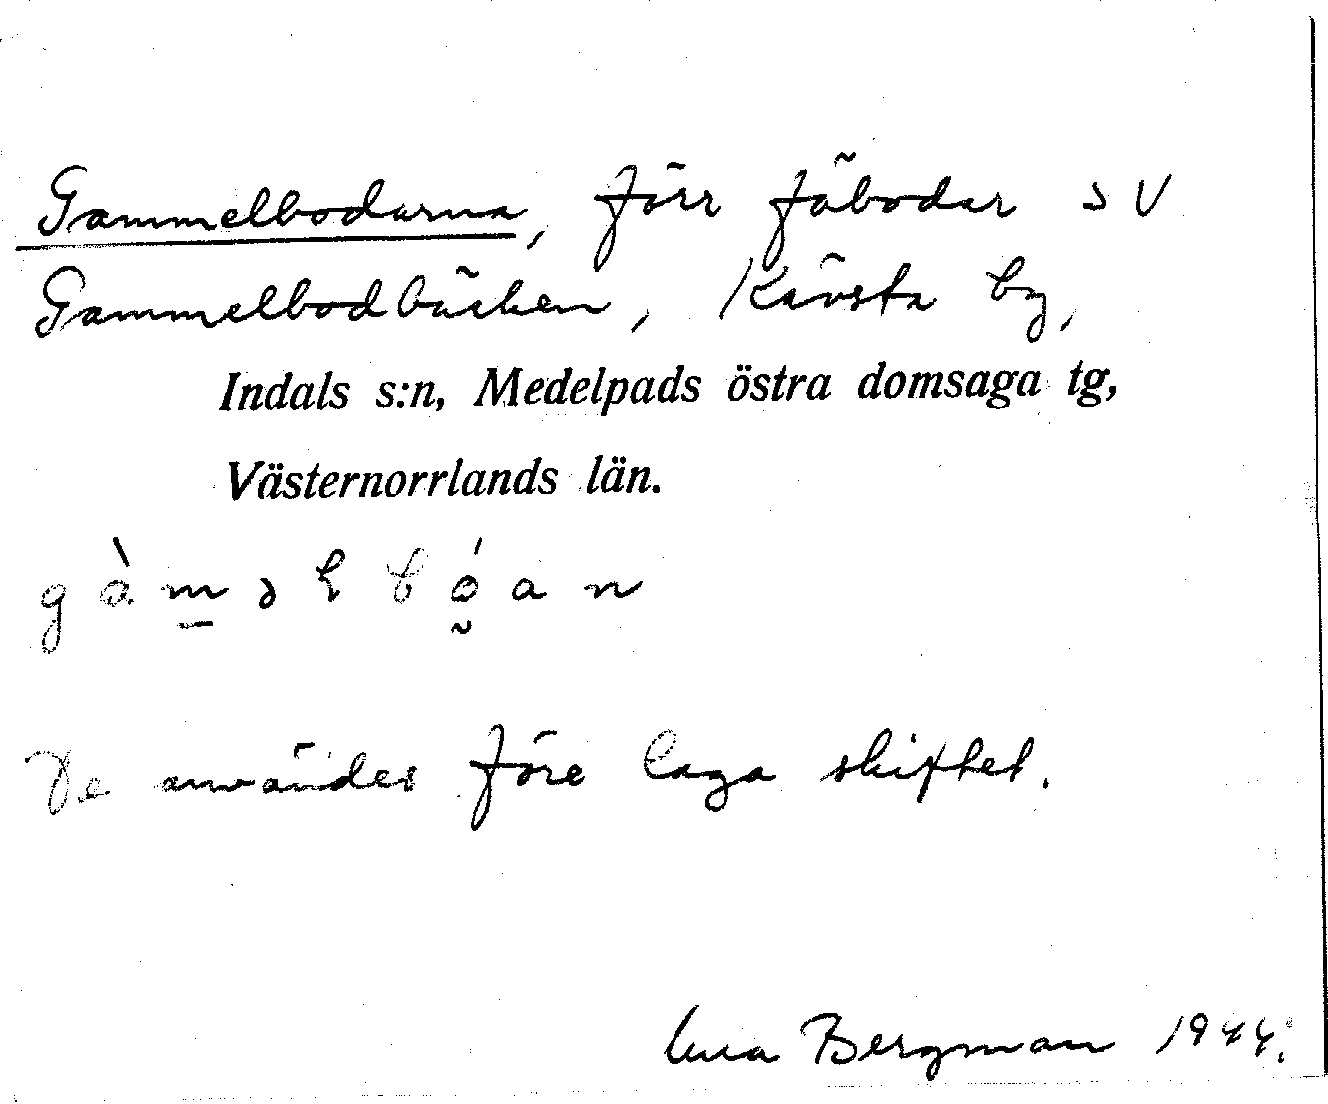 Gammelbodarna, förr fäbodar SV
Gammelbodbäcken, Kävsta by,
Indals s:n, Medelpads östra domsaga tg,
Västernorrlands län.
gàməl bóan
De användes före laga skiftet.
Bergman 1944.